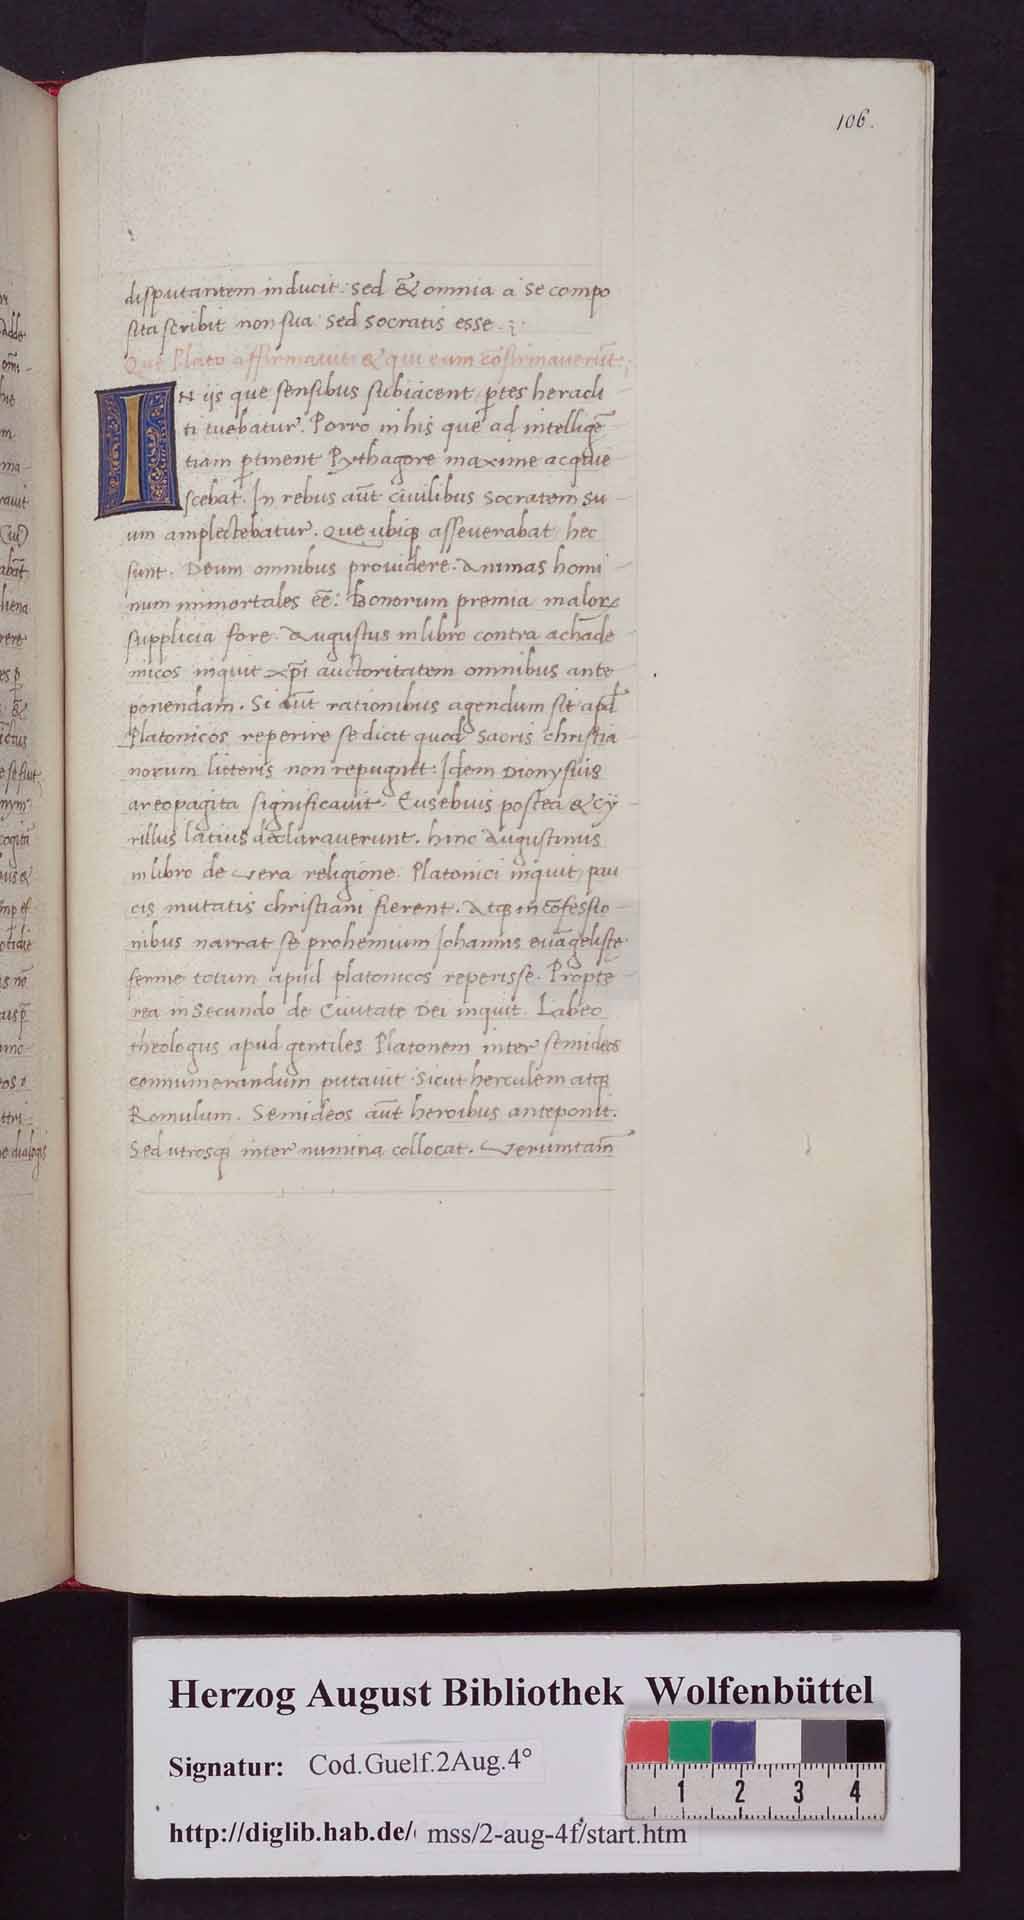 106.
disputantem inducit. sed & omnia a se compo
sita scribit non sua sed socratis esse.
Que Plato affirmavit & qui eum cōfirmaverūt.
IN ijs que sensibus subiacent ꝑtes heracli
ti tuebatur. Porro in his que ad intelligē
tiam ꝑtinent Pythagore maxime acquie
scebat. In rebus aūt civilibus socratem su
um amplectebatur. Que ubiqꝫ asseverabat hec
sunt. Deum omnibus providere. Animas homi
num immortales eē: Bonorum premia malorꝝ
supplicia fore. Augustus in libro contra achade
micos inquit xp̄i auctoritatem omnibus ante
ponendam. Si aūt rationibus agendum sit apd̛
Platonicos reperire se dicit quod sacris christia
norum litteris non repugnet: Idem Dionysius
areopagita significavit. Eusebius postea & cy
rillus latius declaraverunt. hinc Augustinus
in libro de vera religione. Platonici inquit pau
cis mutatis christiani fierent. Atqꝫ in cōfessio
nibus narrat se prohemium Johannis evāgeliste
ferme totum apud platonicos reperisse. Propte
rea in Secundo de Civitate Dei inquit. Labeo
theologus apud gentiles Platonem inter semideos
connumerandum putavit. Sicut herculem atqꝫ
Romulum. Semideos aūt heroibus anteponit.
Sed utrosqꝫ inter numina collocat. Verumtam̄
Herzog August Bibliothek Wolfenbüttel
Signatur: Cod.Guelf.2Aug.4°
1 2 3 4
http://diglib.hab.de/ mss/2-aug-4f/start.htm